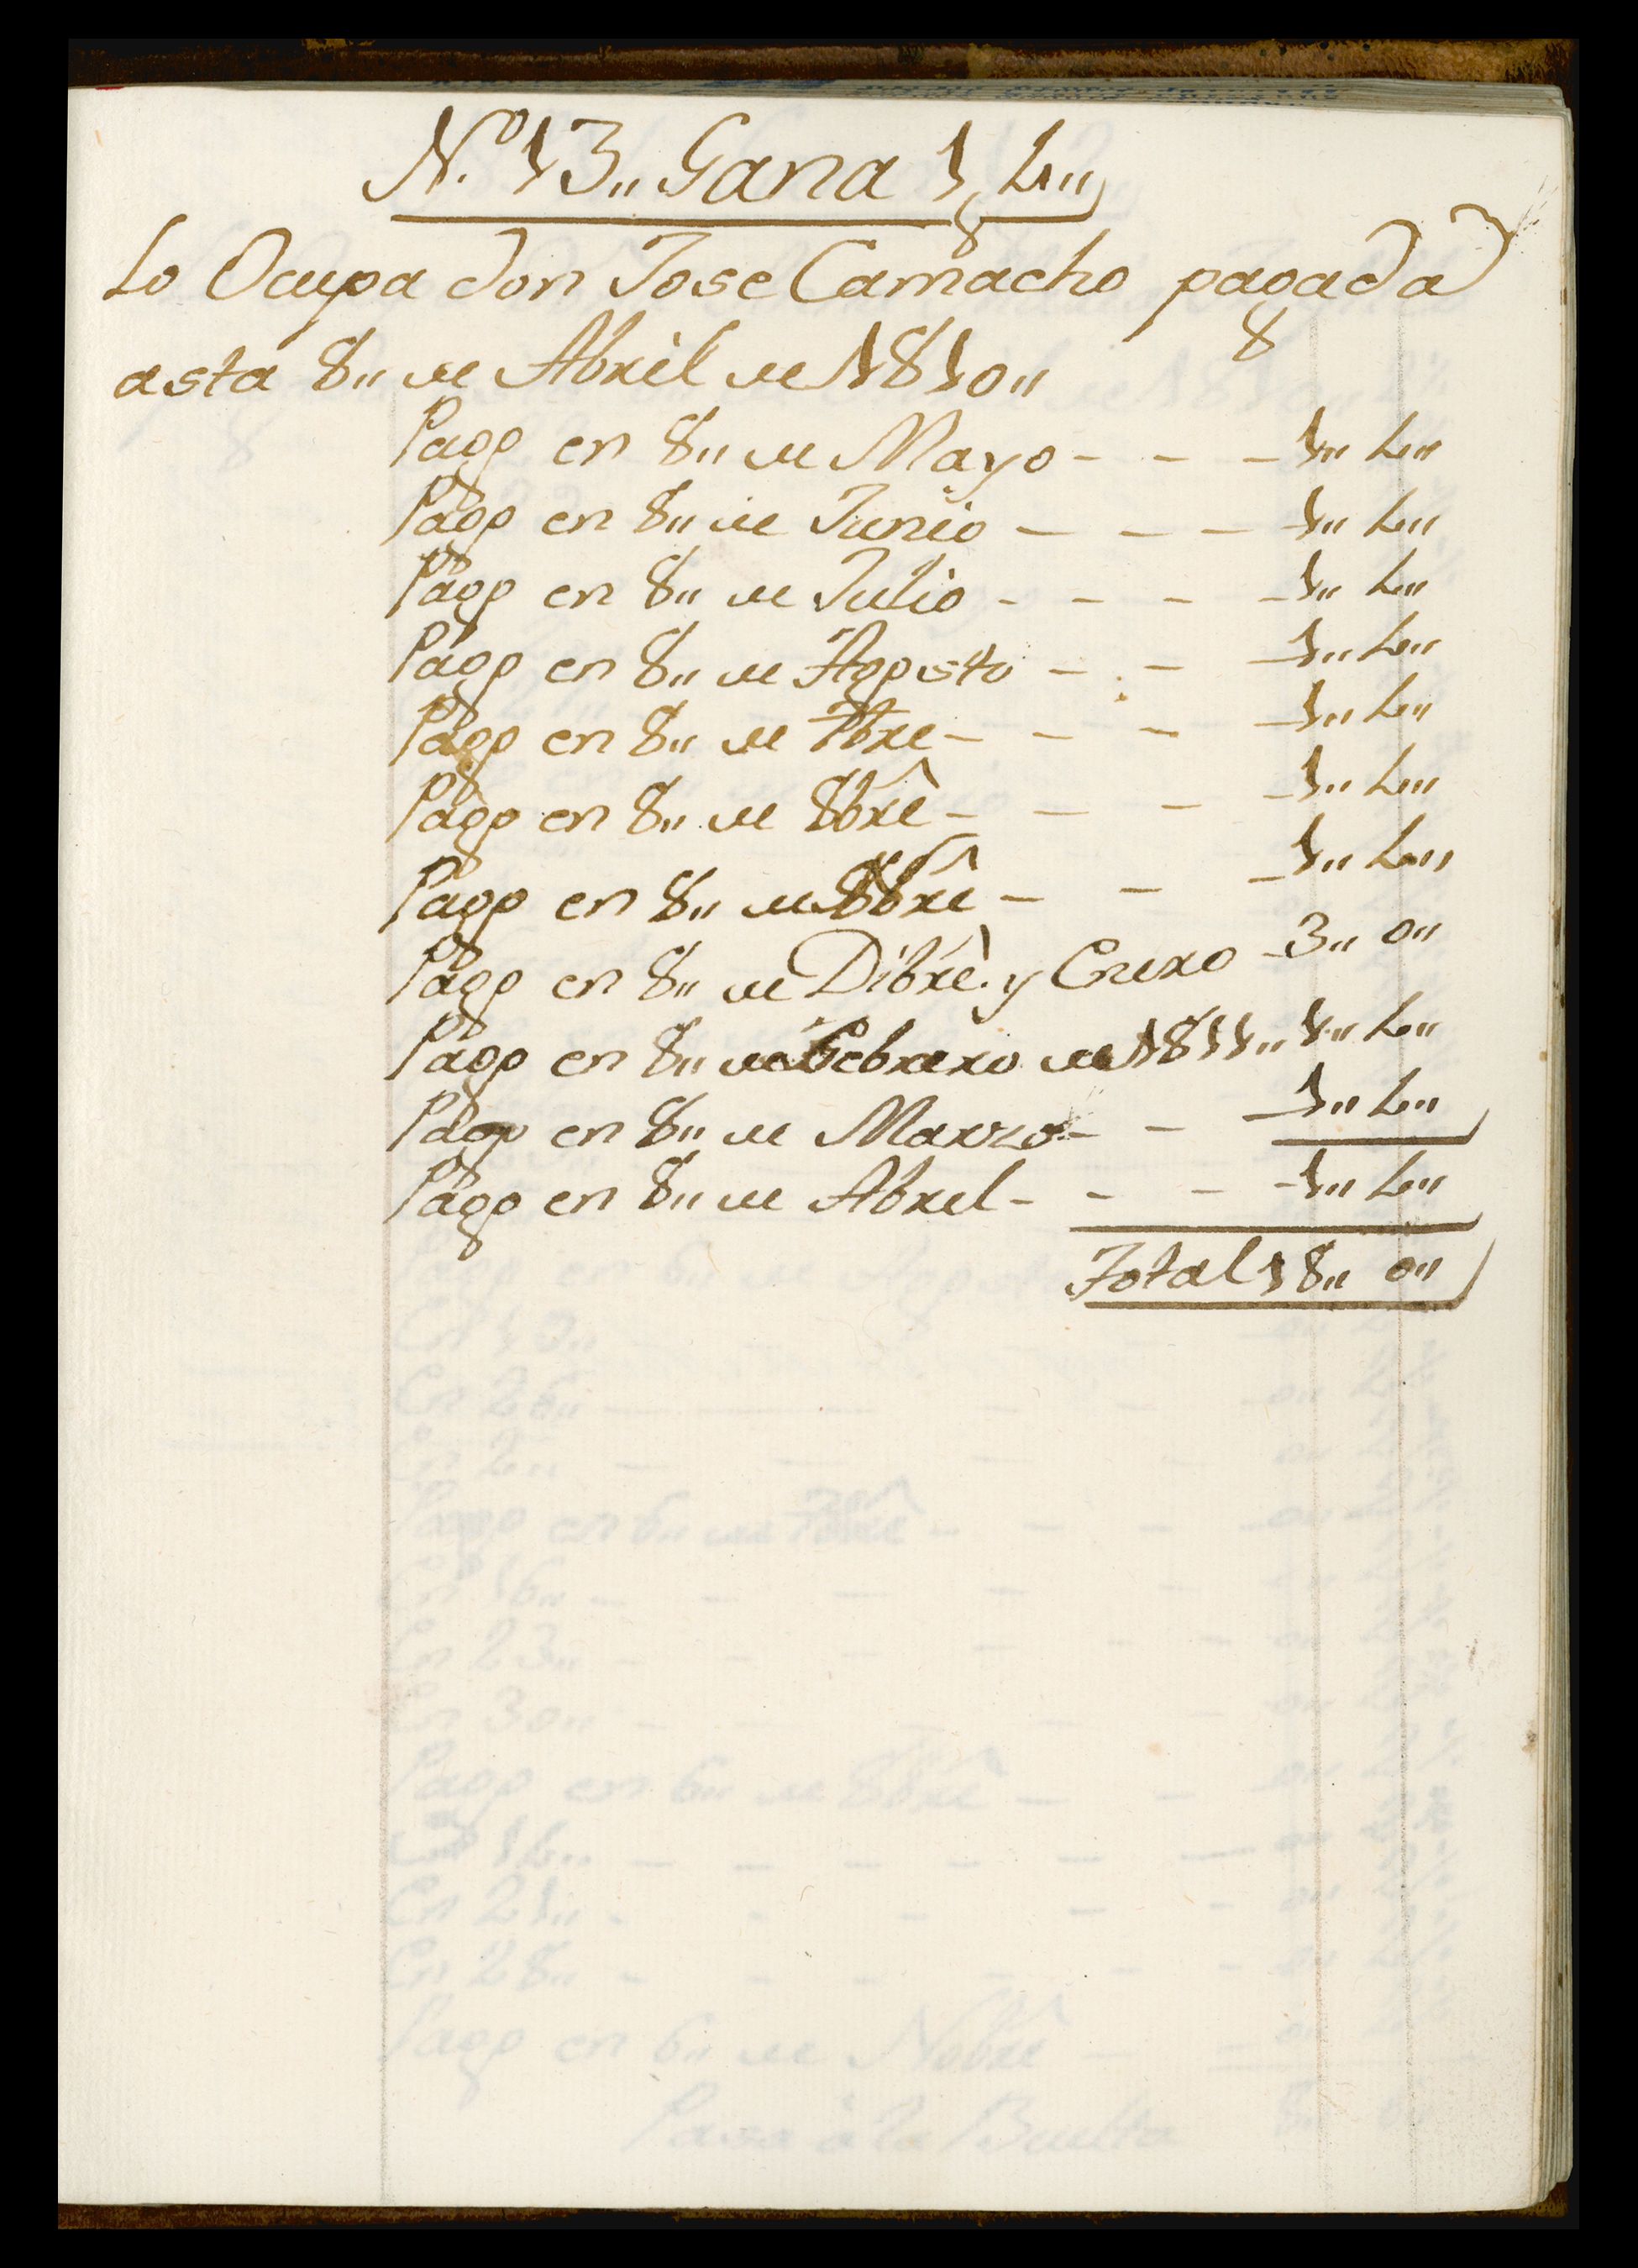 N.º 13,, Gana 1,, 4,,
Lo Ocupa don Jose Camacho pagada
asta 8,, de Abril de 1810,,
Pago en 8,, de Mayo - - - 1,, 4,,
Pago en 8,, de Junio - - - 1,, 4,,
Pago en 8,, de Julio - - - - 1,, 4,,
Pago en 8,, de Agosto - - - 1,, 4,,
Pago en 8,, de 7bre - - - - 1,, 4,,
Pago en 8,, de 8bre - - - - 1,, 4,,
Pago en 8,, de Nobre - - - 1,, 4,,
Pago en 8,, de Dibre. y Enero - 3,, 0,,
Pago en 8,, de Febrero de 1811,, 1,, 4,,
Pago en 8,, de Marzo - - - 1,, 4,,
Pago en 8,, de Abrel - - - - 1,, 4,,
Total 18,, 0,,